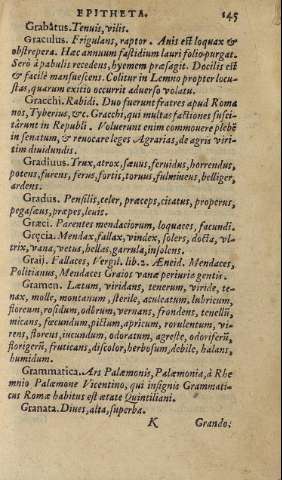 EPITHETA. 145
Grabâtus. Tenuis, vilis.
Graculus. Frigulans, raptor. Auis est loquax &
obstrepera. Hac annuum fastidium lauri folio purgat.
Serò à pabulis recedens, hyemem præsagit. Docilis est
& facilè mansuescens. Colitur in Lemno propter locu-
stas, quarum exitio occurrit aduerso volatu.
Gracchi. Rabidi. Duo fuerunt fratres apud Roma
nos, Tyberius, &c. Gracchi, qui multas factiones susci-
târunt in Republi. Voluerunt enim commouere plebē
in senatum, & reuocare leges Agrarias, de agris viri-
tim diuidundis.
Gradiuus. Trux, atrox, sæuus, feruidus, horrendus,
potens, furens, ferus, fortis, toruus, fulmineus, belliger,
ardens.
Gradus. Pensilis, celer, præceps, citatus, properus,
pegaseus, præpes, leuis.
Græci. Parentes mendaciorum, loquaces, facundi.
Gręcia. Mendax, fallax, vindex, solers, docta, vl-
trix, vana, vetus, bellax, garrula, insolens.
Graij. Fallaces, Vergil. lib. 2. Æneid. Mendaces,
Politianus, Mendaces Graios vanæ periuria gentis.
Gramen. Lætum, viridans, tenerum, viride, te-
nax, molle, montanum, sterile, aculeatum, lubricum,
floreum, rosidum, odorum, vernans, frondens, tenellū,
micans, fœcundum, pictum, apricum, rorulentum, vi-
rens, florens, iucundum, odoratum, agreste, odoriferū,
florigerū, fruticans, discolor, herbosum, debile, halans,
humidum.
Grammatica. Ars Palæmonis, Palæmonia, à Rhe
mnio Palæmone Vicentino, qui insignis Grammati-
cus Romæ habitus est ætate Quintiliani.
Granata. Diues, alta, superba.
K Grando;